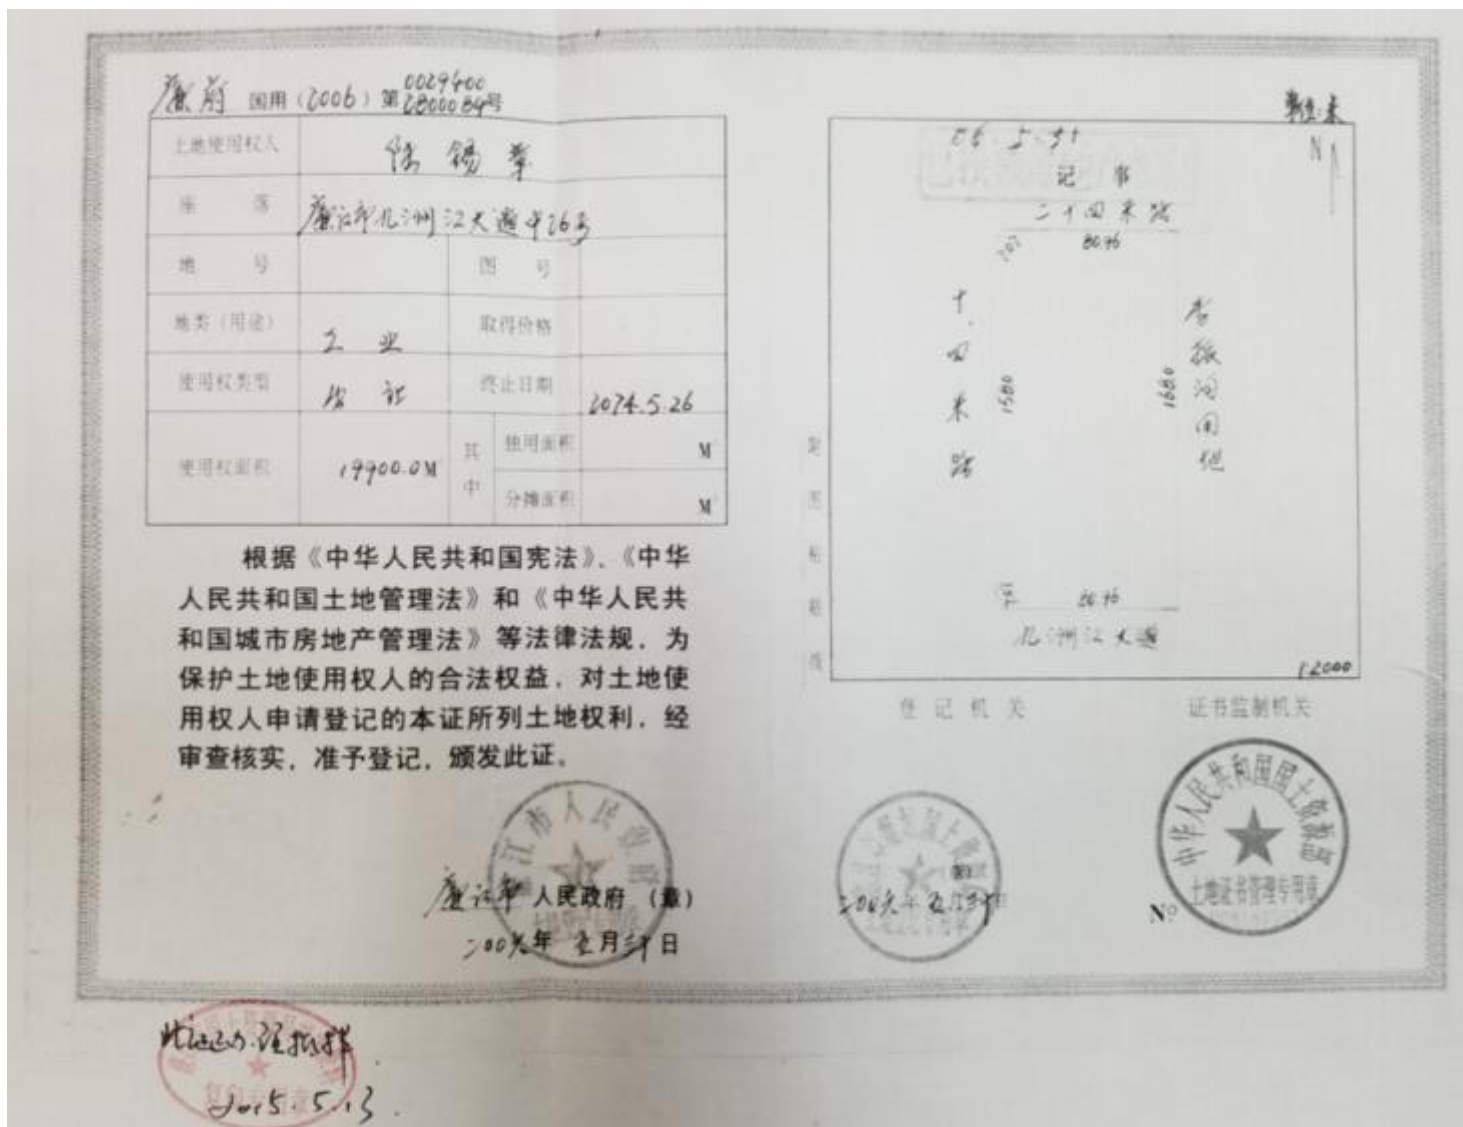 廉府 国用(2006)第 0029400
2800084号
土地使用权人 陈锡
座 落 廉江市九洲江大道中26号
地 号 图 号
地类(用途) 工 业 取得价格
使用权类型 出 让 终止日期 2074.5.26
使用权面积 19900.0M² 其中 独用面积 M²
分摊面积 M²
根据《中华人民共和国宪法》、《中华
人民共和国土地管理法》和《中华人民共
和国城市房地产管理法》等法律法规,为
保护土地使用权人的合法权益,对土地使
用权人申请登记的本证所列土地权利,经
审查核实,准予登记,颁发此证。
廉江市人民政府
廉江市 人民政府 (章)
二00六年 五月三十日
单位:米
N
06.5.31
记 事
二十四米路
80.96
十四米路
1580
1680
李振 用地
80.96
九洲江大道
1:2000
附图粘贴线
登记机关
证书监制机关
二00六年五月三十日
中华人民共和国国土资源部
土地证书管理专用章
Nº
此证已办理抵押
2015.5.13.